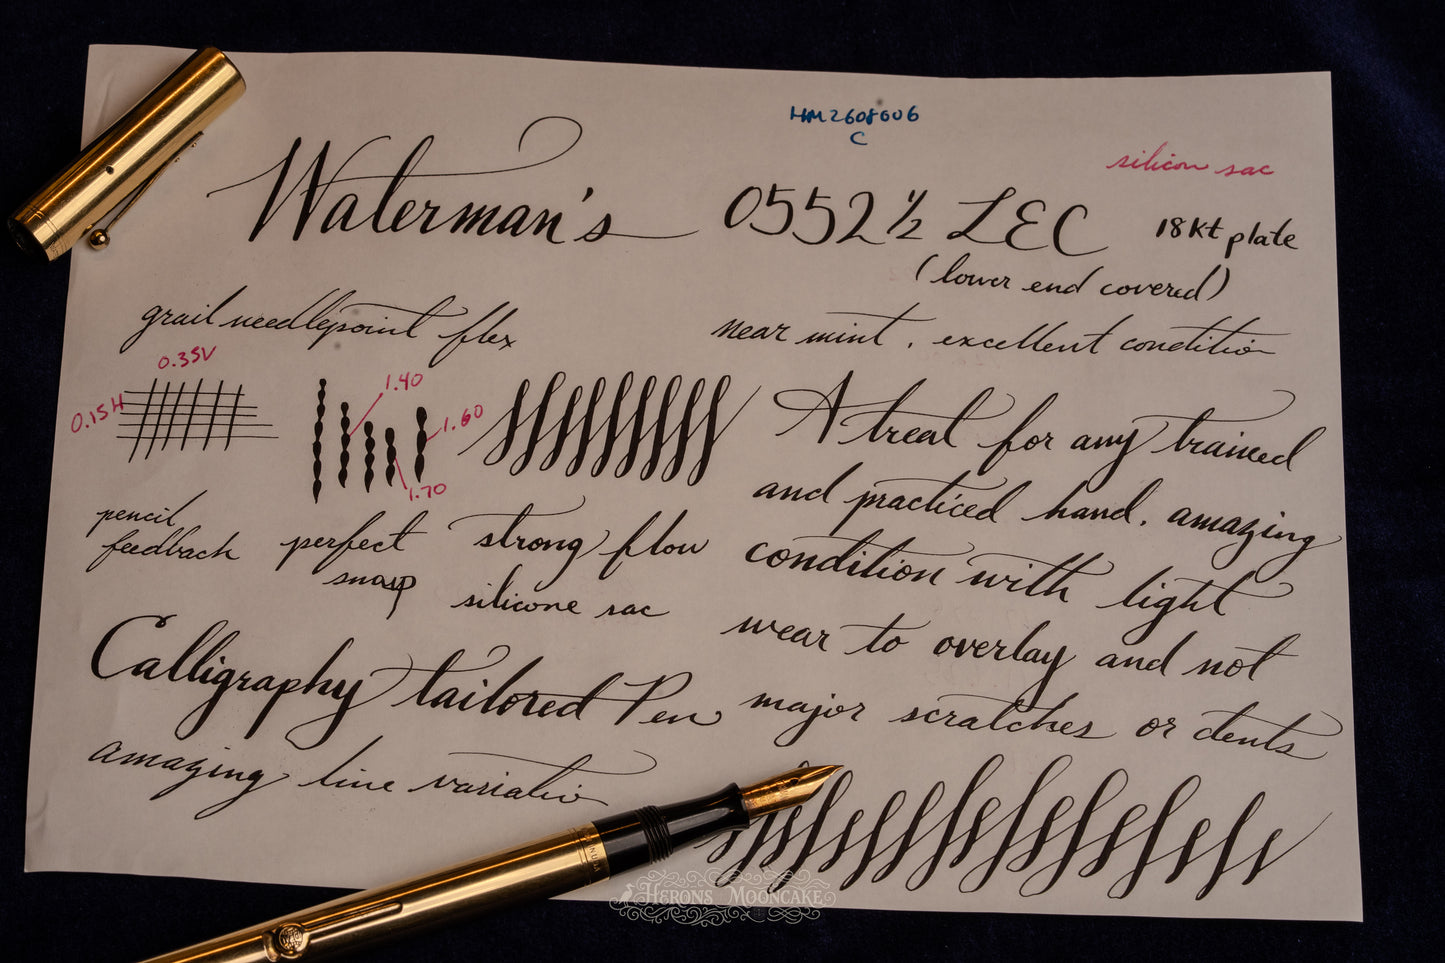 HM2608006
C
silicon sac
Waterman's 0552½ LEC 18Kt plate
(lower end covered)
grail needlepoint flex
near mint, excellent condition
0.35V
0.15H
1.40
1.60
1.70
pencil
feedback
perfect
snap
strong flow
silicone sac
A treat for any trained
and practiced hand, amazing
condition with light
wear to overlay and not
major scratches or dents
Calligraphy tailored Pen
amazing line variation
HERONS MOONCAKE